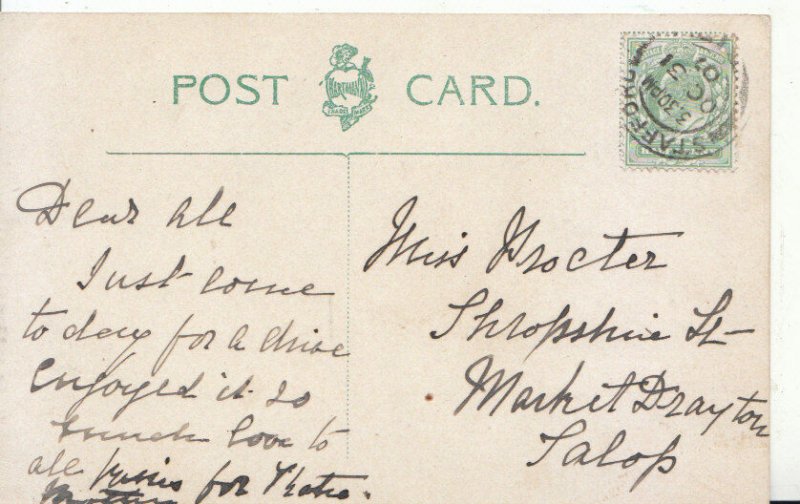 POST CARD.
HARTMANN
TRADE MARK
STAFFORD
3.30 PM
OC 31
07
Dear all
Just come
to day for a drive
enjoyed it so
much love to
all kisses for
Miss Procter
Shropshire St
Market Drayton
Salop